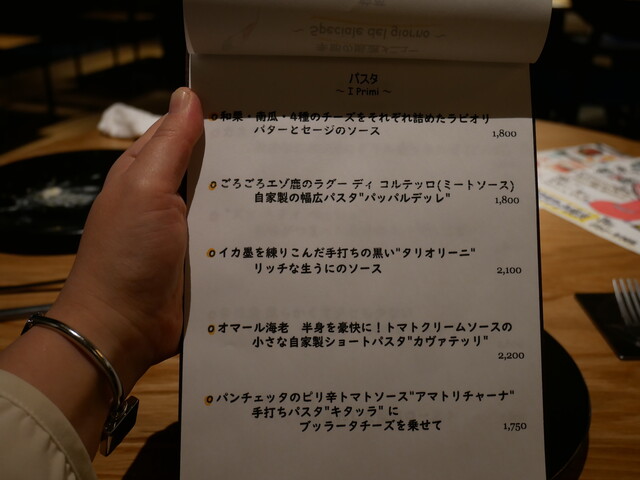 ~ Speciale del giorno ~
パスタ
~ I Primi ~
和栗・南瓜・4種のチーズをそれぞれ詰めたラビオリ
バターとセージのソース
1,800
ごろごろエゾ鹿のラグー ディ コルテッロ(ミートソース)
自家製の幅広パスタ"パッパルデッレ"
1,800
イカ墨を練りこんだ手打ちの黒い"タリオリーニ"
リッチな生うにのソース
2,100
オマール海老　半身を豪快に！トマトクリームソースの
小さな自家製ショートパスタ"カヴァテッリ"
2,200
パンチェッタのピリ辛トマトソース"アマトリチャーナ"
手打ちパスタ"キタッラ" に
ブッラータチーズを乗せて
1,750